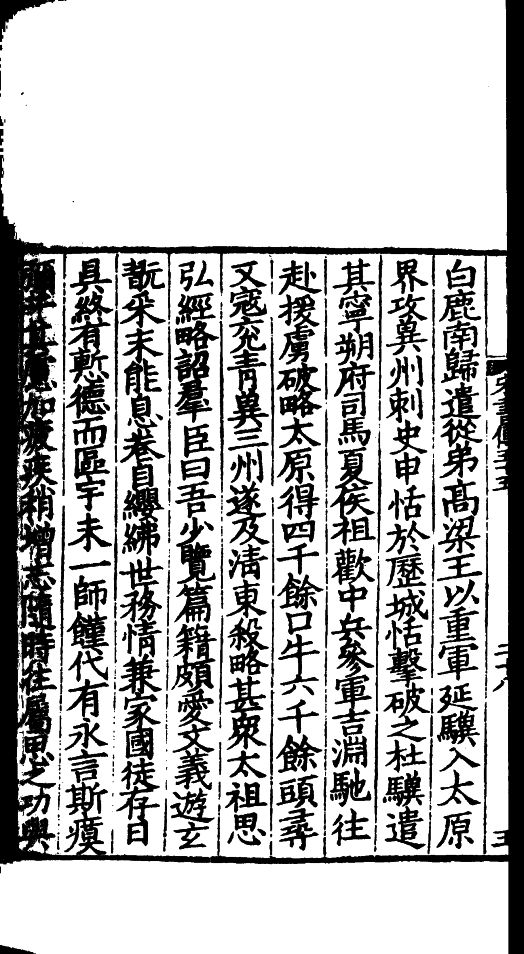 白鹿南歸遣從弟高梁王以重軍延驥入太原
界攻兾州刺史申恬於歷城恬擊破之杜驥遣
其寧朔府司馬夏侯祖歡中兵參軍吉淵馳往
赴援虜破略太原得四千餘口牛六千餘頭尋
又寇兖青兾三州遂及清東殺略甚衆太祖思
弘經略詔羣臣曰吾少覽篇籍頗愛文義遊玄
翫采未能息卷自纓紼世務情兼家國徒存日
具終有慙德而區宇未一師饉代有永言斯瘼
彌干其慮加疲疾稍增志隨時往屬思之功與
宋書傳五十五
二十八